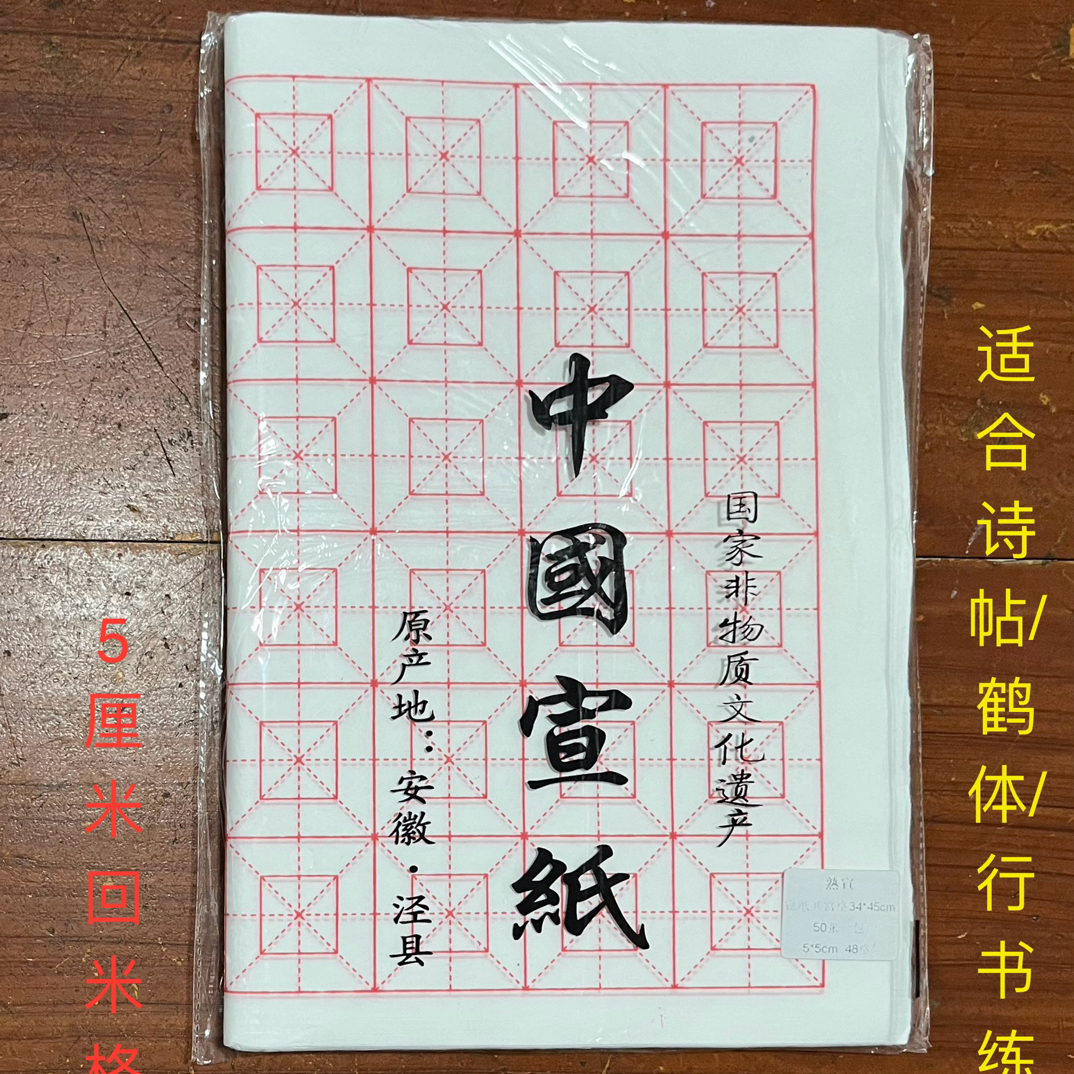 中國宣紙
国家非物质文化遗产
原产地：安徽·泾县
适合诗帖/鹤体/行书练
5厘米回米格
熟宣
34*45cm
50张
5*5cm 48格